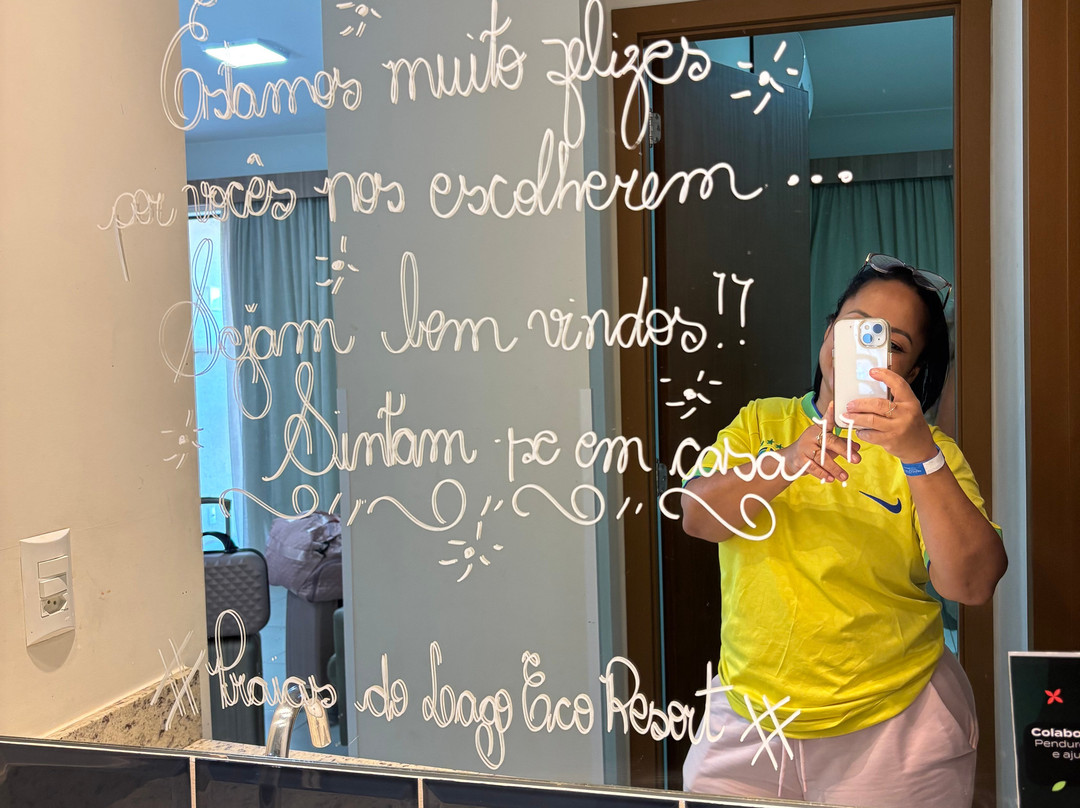 Estamos muito felizes
por vocês nos escolherem ...
Sejam bem vindos!!
Sintam-se em casa!!
Praias do Lago Eco Resort
Colabo
Pendur
e aju